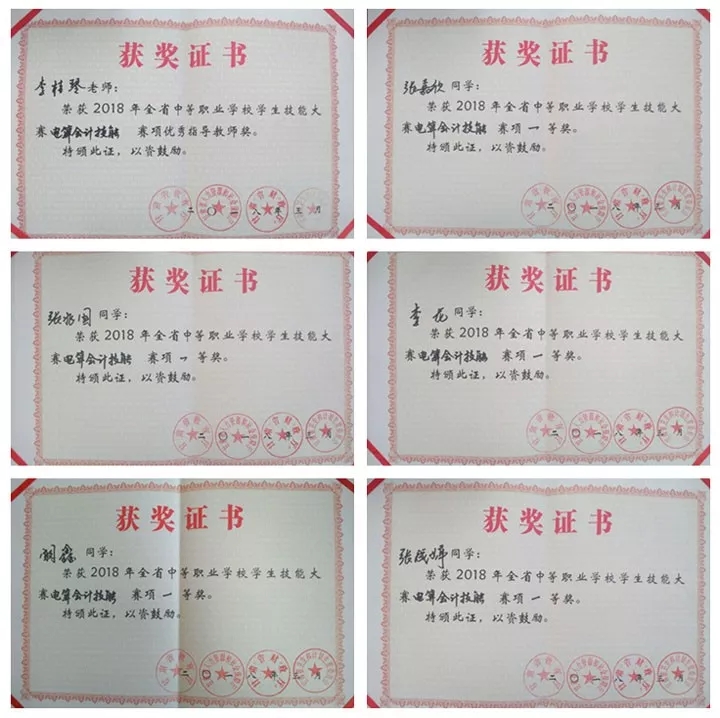 获奖证书
李桂琴老师:
荣获2018年全省中等职业学校学生技能大
赛电算会计技能 赛项优秀指导教师奖。
特颁此证,以资鼓励。
二〇一八年三月
获奖证书
张嘉欣同学:
荣获2018年全省中等职业学校学生技能大
赛电算会计技能 赛项一等奖。
特颁此证,以资鼓励。
二〇一八年三月
获奖证书
同学:
荣获2018年全省中等职业学校学生技能大
赛电算会计技能 赛项一等奖。
特颁此证,以资鼓励。
二〇一八年三月
获奖证书
李龙同学:
荣获2018年全省中等职业学校学生技能大
赛电算会计技能 赛项一等奖。
特颁此证,以资鼓励。
二〇一八年三月
获奖证书
同学:
荣获2018年全省中等职业学校学生技能大
赛电算会计技能 赛项一等奖。
特颁此证,以资鼓励。
二〇一八年三月
获奖证书
张成婷同学:
荣获2018年全省中等职业学校学生技能大
赛电算会计技能 赛项一等奖。
特颁此证,以资鼓励。
二〇一八年三月